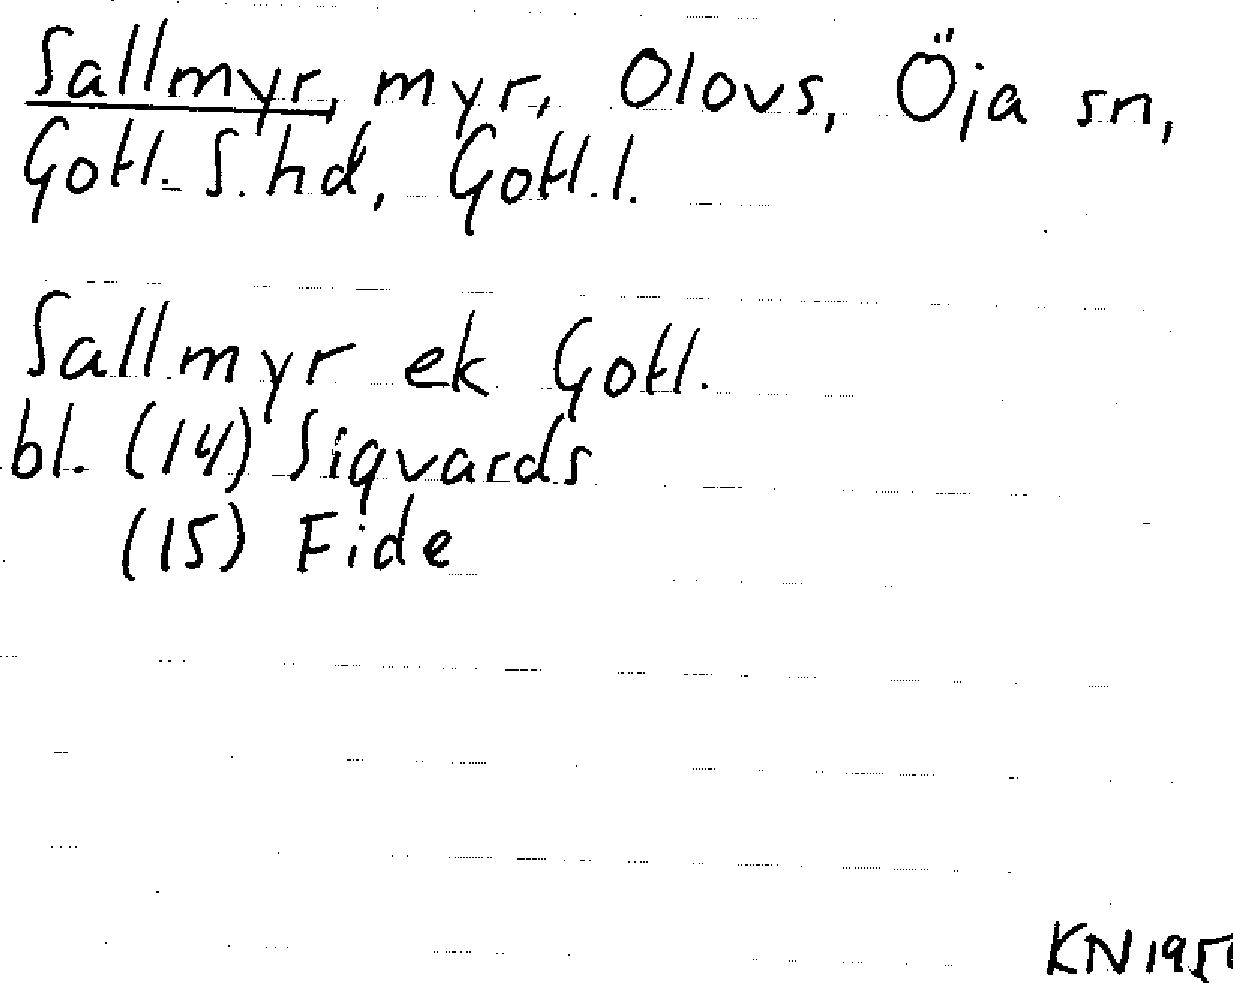 Sallmyr, myr, Olovs, Öja sn,
Gotl. S. hd, Gotl. l.
Sallmyr ek Gotl.
bl. (14) Sigvards
(15) Fide
KN 195